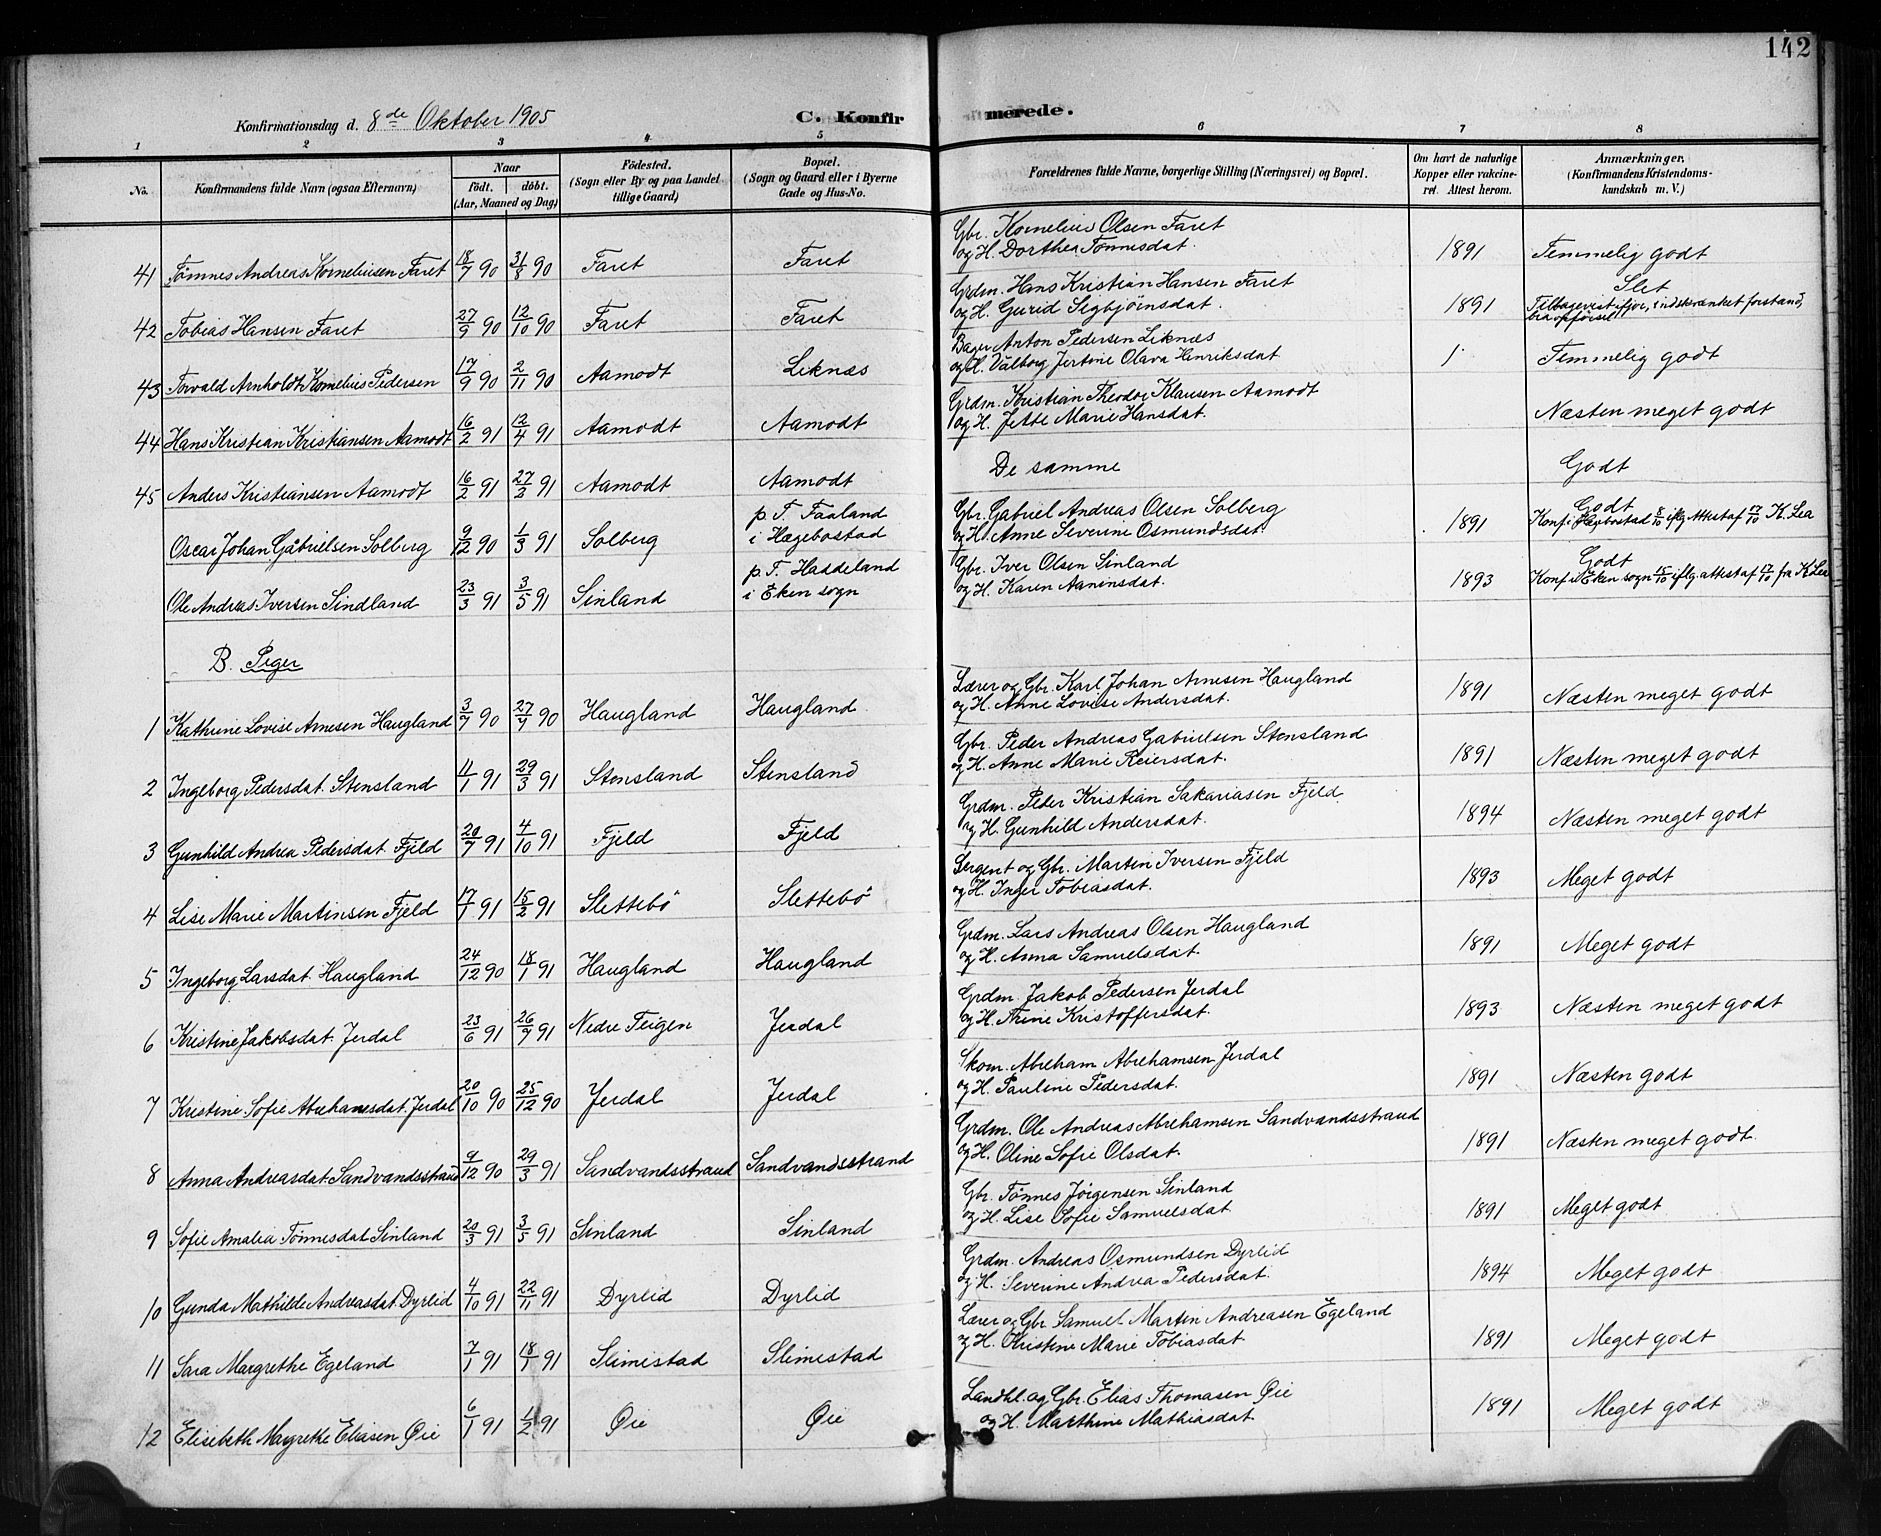 142
Konfirmationsdag d. 8de Oktober 1905 C. Konfirmerede.
1 2 3 4 5 6 7 8
No. Konfirmandens fulde Navn (ogsaa Efternavn) Naar födt. döbt. (Aar, Maaned og Dag) Födested. (Sogn eller By og paa Landet tillige Gaard) Bopæl. (Sogn og Gaard eller i Byerne Gade og Hus-No. Forældrenes fulde Navne, borgerlige Stilling (Næringsvei) og Bopæl. Om havt de naturlige Kopper eller vakcineret. Attest herom. Anmærkninger. (Konfirmandens Kristendomskundskab m. V.)
41 Tønnes Andreas Korneliusen Faret 18/7 90 31/8 90 Faret Faret Gbr. Kornelius Olsen Faret og H. Dorthea Tønnesdat. 1891 Temmelig godt
42 Tobias Hansen Faret 27/9 90 12/10 90 Faret Faret Grdm. Hans Kristian Hansen Faret og H. Gurid Sigbjörnsdat. 1891 Slet Tilbagevist ifjor, indskrænket forstand, bra opförsel
43 Torvald Arnholdt Kornelius Pedersen 17/9 90 2/11 90 Aamodt Liknæs Bager Anton Pedersen Liknæs og H. Valborg Jertine Olava Henriksdat 1. Temmelig godt
44 Hans Kristian Kristiansen Aamodt 16/2 91 12/4 91 Aamodt Aamodt Grdm. Kristian Theodor Klausen Aamodt og H. Jette Marie Hansdat. Næsten meget godt
45 Anders Kristiansen Aamodt 16/2 91 27/2 91 Aamodt Aamodt De samme Godt
Oscar Johan Gabrielsen Solberg 9/12 90 1/3 91 Solberg p. T. Faaland i Hægebostad Gbr. Gabriel Andreas Olsen Solberg og H. Anne Severine Osmundsdat. 1891 Godt Konf i Hægbostad 8/10 iflg Attest af 17/10 K. Lea
Ole Andreas Iversen Sindland 23/3 91 3/5 91 Sinland p. T. Haddeland i Eken sogn Gbr. Iver Olsen Sinland og H. Karen Aanensdat. 1893 Godt Konf i Eken sogn 15/10 iflg. attest af 17/10 fra K Lea
B. Piger
1 Kathrine Lovise Arnesen Haugland 3/7 90 27/7 90 Haugland Haugland Lærer og Gbr. Karl Johan Arnesen Haugland og H. Anne Lovise Andersdat. 1891 Næsten meget godt
2 Ingeborg Pedersdat. Stensland 11/1 91 29/3 91 Stensland Stensland Gbr. Peder Andreas Gabrielsen Stensland og H. Anne Marie Reiersdat. 1891 Næsten meget godt
3 Gunhild Andrea Pedersdat. Fjeld 20/7 91 4/10 91 Fjeld Fjeld Grdm. Peder Kristian Sakariasen Fjeld og H. Gunhild Andersdat. 1894 Næsten meget godt
4 Lise Marie Martinsen Fjeld 17/1 91 15/2 91 Slettebö Slettebö Sergent og Gbr. Martin Iversen Fjeld og H. Inger Tobiasdat. 1893 Meget godt
5 Ingeborg Larsdat. Haugland 24/12 90 18/1 91 Haugland Haugland Grdm. Lars Andreas Olsen Haugland og H. Anna Samuelsdat. 1891 Meget godt
6 Kristine Jakobsdat. Jerdal 23/6 91 26/7 91 Nedre Teigen Jerdal Grdm. Jakob Pedersen Jerdal og H. Trine Kristoffersdat. 1893 Næsten meget godt
7 Kristine Sofie Abrahamsdat. Jerdal 20/10 90 25/12 90 Jerdal Jerdal Skom. Abraham Abrahamsen Jerdal og H. Pauline Pedersdat. 1891 Næsten godt
8 Anna Andreasdat. Sandvandsstrand 9/12 90 29/3 91 Sandvandsstrand Sandvandsstrand Grdm. Ole Andreas Abrehamsen Sandvandsstrand og H. Oline Sofie Olsdat. 1891 Næsten meget godt.
9 Sofie Amalia Tönnesdat. Sinland 20/3 91 3/5 91 Sinland Sinland Gbr. Tönnes Jörgensen Sinland og H. Lise Sofie Samuelsdat. 1891 Meget godt
10 Gunda Mathilde Andreasdat. Dyrlid 4/10 91 22/11 91 Dyrlid Dyrlid Grdm. Andreas Osmundsen Dyrlid og H. Severine Andrea Pedersdat. 1894 Meget godt
11 Sara Margrethe Egeland 7/1 91 18/1 91 Slimestad Slimestad Lærer og Gbr Samuel Martin Andreasen Egeland og H. Kristine Marie Tobiasdat. 1891 Meget godt
12 Elisebeth Margrethe Eliasen Øie 6/1 91 1/2 91 Øie Øie Landhl. og Gbr. Elias Thomasen Øie og H. Marthine Mathiasdat. 1891 Meget godt